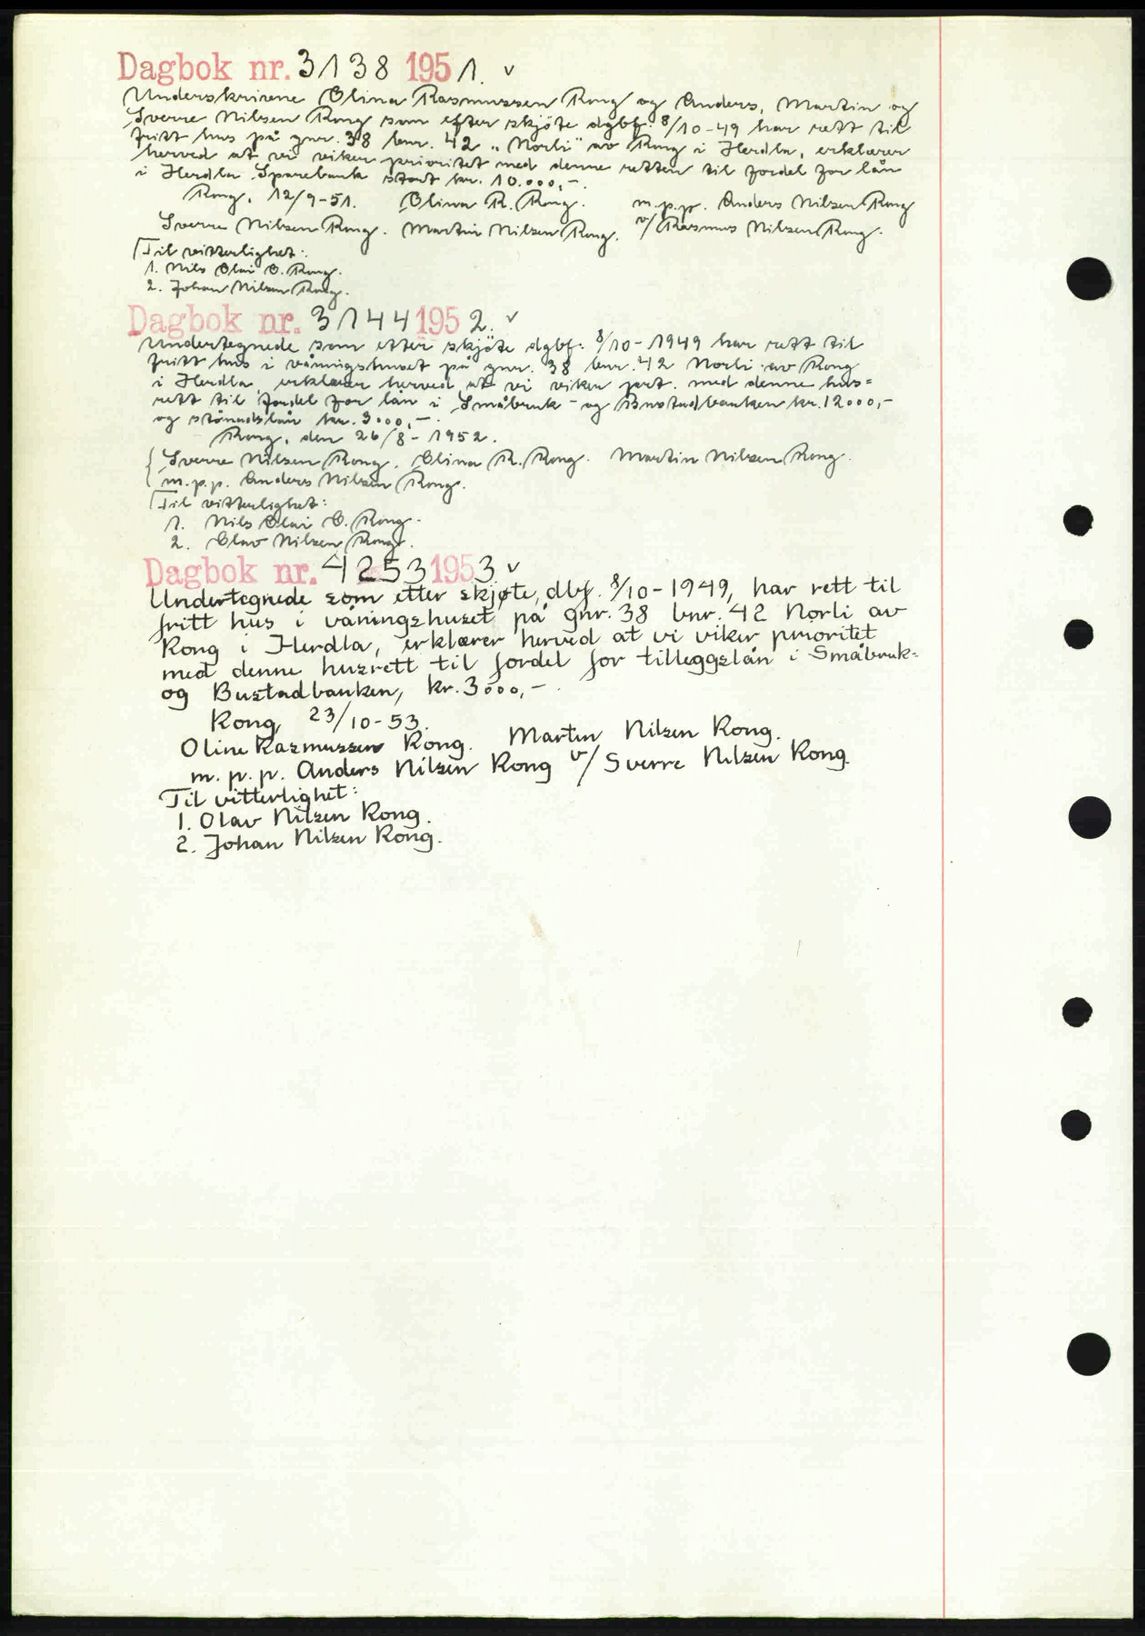 Dagbok nr. 3138 1951. v
Underskrivne Olina Rasmussen Rong og Anders, Martin og
Sverre Nilsen Rong som efter skjöte dgbf. 8/10-49 har rett til
fritt hus på gnr. 38 bnr. 42 „Norli" av Rong i Herdla, erklærer
herved at vi viker prioritet med denne retten til fordel for lån
i Herdla Sparebank stort kr. 10.000,-.
Rong, 12/9-51. Olina R. Rong. m.p.p. Anders Nilsen Rong
Sverre Nilsen Rong. Martin Nilsen Rong. v/ Rasmus Nilsen Rong.
Til vitterlighet:
1. Nils Olai O. Rong.
2. Johan Nilsen Rong.
Dagbok nr. 3144 1952. v
Undertegnede som etter skjöte dgbf. 8/10-1949 har rett til
fritt hus i våningshuset på gnr. 38 bnr. 42 Norli av Rong
i Herdla, erklærer herved at vi viker prt. med denne hus=
rett til fordel for lån i Småbruk- og Bustadbanken kr. 12000,-
og stönadslån kr. 3000,-.
Rong, den 26/8-1952.
Sverre Nilsen Rong. Olina R. Rong. Martin Nilsen Rong.
m.p.p. Anders Nilsen Rong.
Til vitterlighet:
1. Nils Olai O. Rong.
2. Olav Nilsen Rong.
Dagbok nr. 4253 1953 v
Undertegnede som etter skjøte, dbf. 8/10-1949, har rett til
fritt hus i våningshuset på gnr. 38 bnr. 42 Norli av
Rong i Herdla, erklærer herved at vi viker prioritet
med denne husrett til fordel for tilleggslån i Småbruk-
og Bustadbanken, kr. 3000,-.
Rong 23/10-53.
Oline Rasmussen Rong. Martin Nilsen Rong.
m. p. p. Anders Nilsen Rong v/ Sverre Nilsen Rong.
Til vitterlighet:
1. Olav Nilsen Rong.
2. Johan Nilsen Rong.